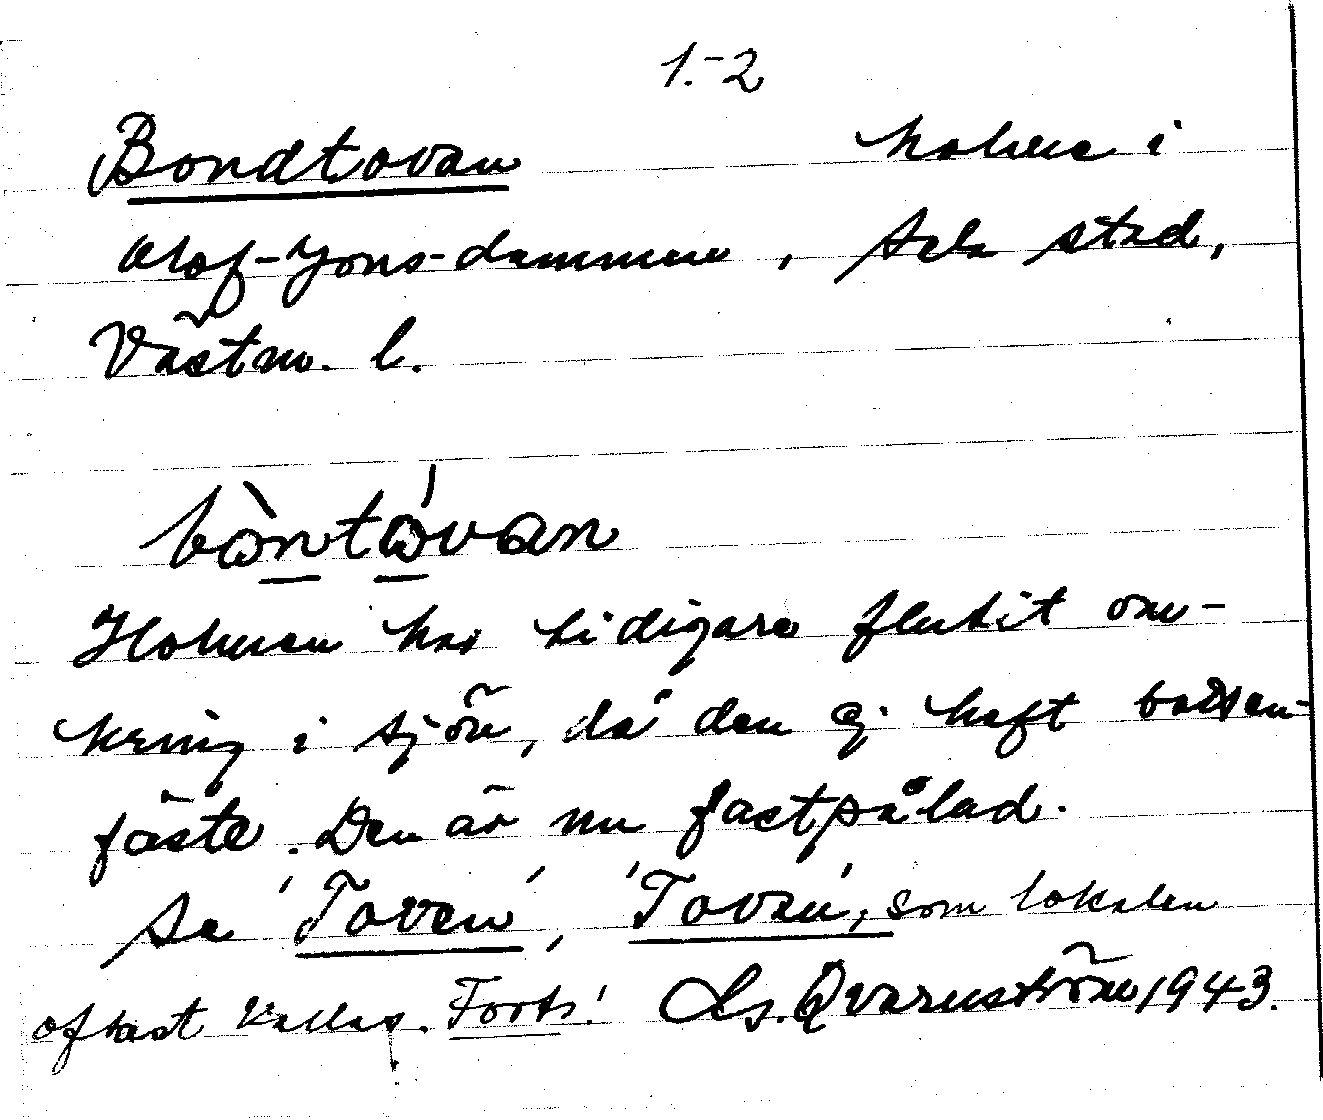 1.-2
Bondtovan holme i
Olof-Jons-dammen, Sala stad,
Västm. l.
bòntóvan
Holmen har tidigare flutit om-
kring i sjön, då den ej haft botten-
fäste. Den är nu fastpålad.
Se 'Toven', 'Tovan', som lokalen
oftast kallas. Forts! Ls. Qvarnström 1943.